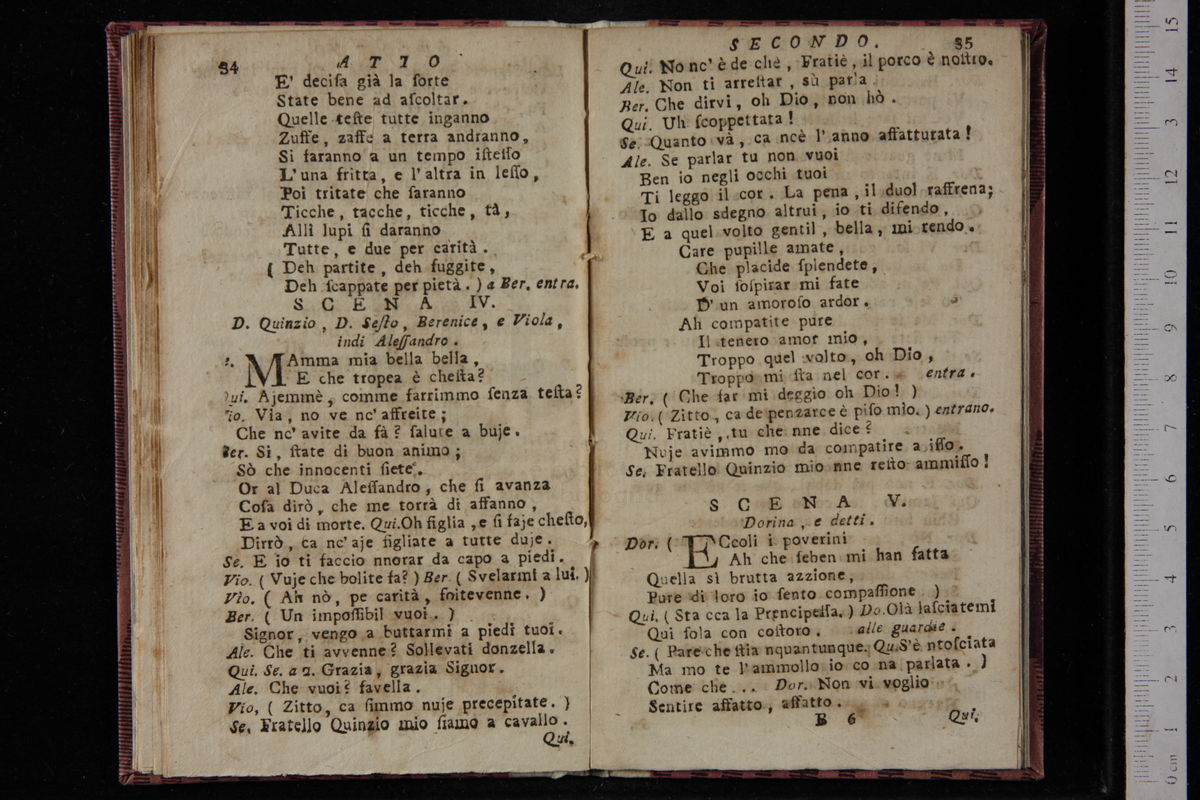 34 ATTO
E' decisa già la sorte
State bene ad ascoltar.
Quelle teste tutte inganno
Zuffe, zaffe a terra andranno,
Si faranno a un tempo istesso
L'una fritta, e l'altra in lesso,
Poi tritate che saranno
Ticche, tacche, ticche, tà,
Alli lupi si daranno
Tutte, e due per carità.
( Deh partite, deh fuggite,
Deh scappate per pietà. ) a Ber. entra.
SCENA IV.
D. Quinzio, D. Sesto, Berenice, e Viola,
indi Alessandro.
MAmma mia bella bella,
E che tropea è chesta?
Qui. Ajemmè, comme farrimmo senza testa?
Vio. Via, no ve nc' affreite;
Che nc' avite da fà? salute a buje.
Ber. Si, state di buon animo;
Sò che innocenti siete.
Or al Duca Alessandro, che si avanza
Cosa dirò, che me torrà di affanno,
E a voi di morte. Qui. Oh figlia, e si faje chesto,
Dirrò, ca nc'aje figliate a tutte duje.
Se. E io ti faccio nnorar da capo a piedi.
Vio. ( Vuje che bolite fa? ) Ber. ( Svelarmi a lui. )
Vio. ( Ah nò, pe carità, foitevenne. )
Ber. ( Un impossibil vuoi. )
Signor, vengo a buttarmi a piedi tuoi.
Ale. Che ti avvenne? Sollevati donzella.
Qui. Se. a 2. Grazia, grazia Signor.
Ale. Che vuoi? favella.
Vio, ( Zitto, ca simmo nuje precepitate. )
Se. Fratello Quinzio mio siamo a cavallo.
Qui.
SECONDO. 35
Qui. No nc' è de chè, Fratiè, il porco è nostro.
Ale. Non ti arrestar, sù parla
Ber. Che dirvi, oh Dio, non hò.
Qui. Uh scoppettata!
Se. Quanto và, ca ncè l'anno affatturata!
Ale. Se parlar tu non vuoi
Ben io negli occhi tuoi
Ti leggo il cor. La pena, il duol raffrena;
Io dallo sdegno altrui, io ti difendo,
E a quel volto gentil, bella, mi rendo.
Care pupille amate,
Che placide splendete,
Voi sospirar mi fate
D' un amoroso ardor.
Ah compatite pure
Il tenero amor mio,
Troppo quel volto, oh Dio,
Troppo mi sta nel cor. entra.
Ber. ( Che far mi deggio oh Dio! )
Vio. ( Zitto, ca de penzarce è piso mio. ) entrano.
Qui. Fratiè, tu che nne dice?
Nuje avimmo mo da compatire a isso.
Se. Fratello Quinzio mio nne resto ammisso!
SCENA V.
Dorina, e detti.
Dor. ( ECcoli i poverini
Ah che seben mi han fatta
Quella sì brutta azzione,
Pure di loro io sento compassione )
Qui. ( Sta cca la Prencipessa. ) Do. Olà lasciatemi
Qui sola con costoro. alle guardie.
Se. ( Pare che stia nquantunque. Qu. S'è ntosciata
Ma mo te l'ammollo io co na parlata. )
Come che... Dor. Non vi voglio
Sentire affatto, affatto.
B 6 Qui.